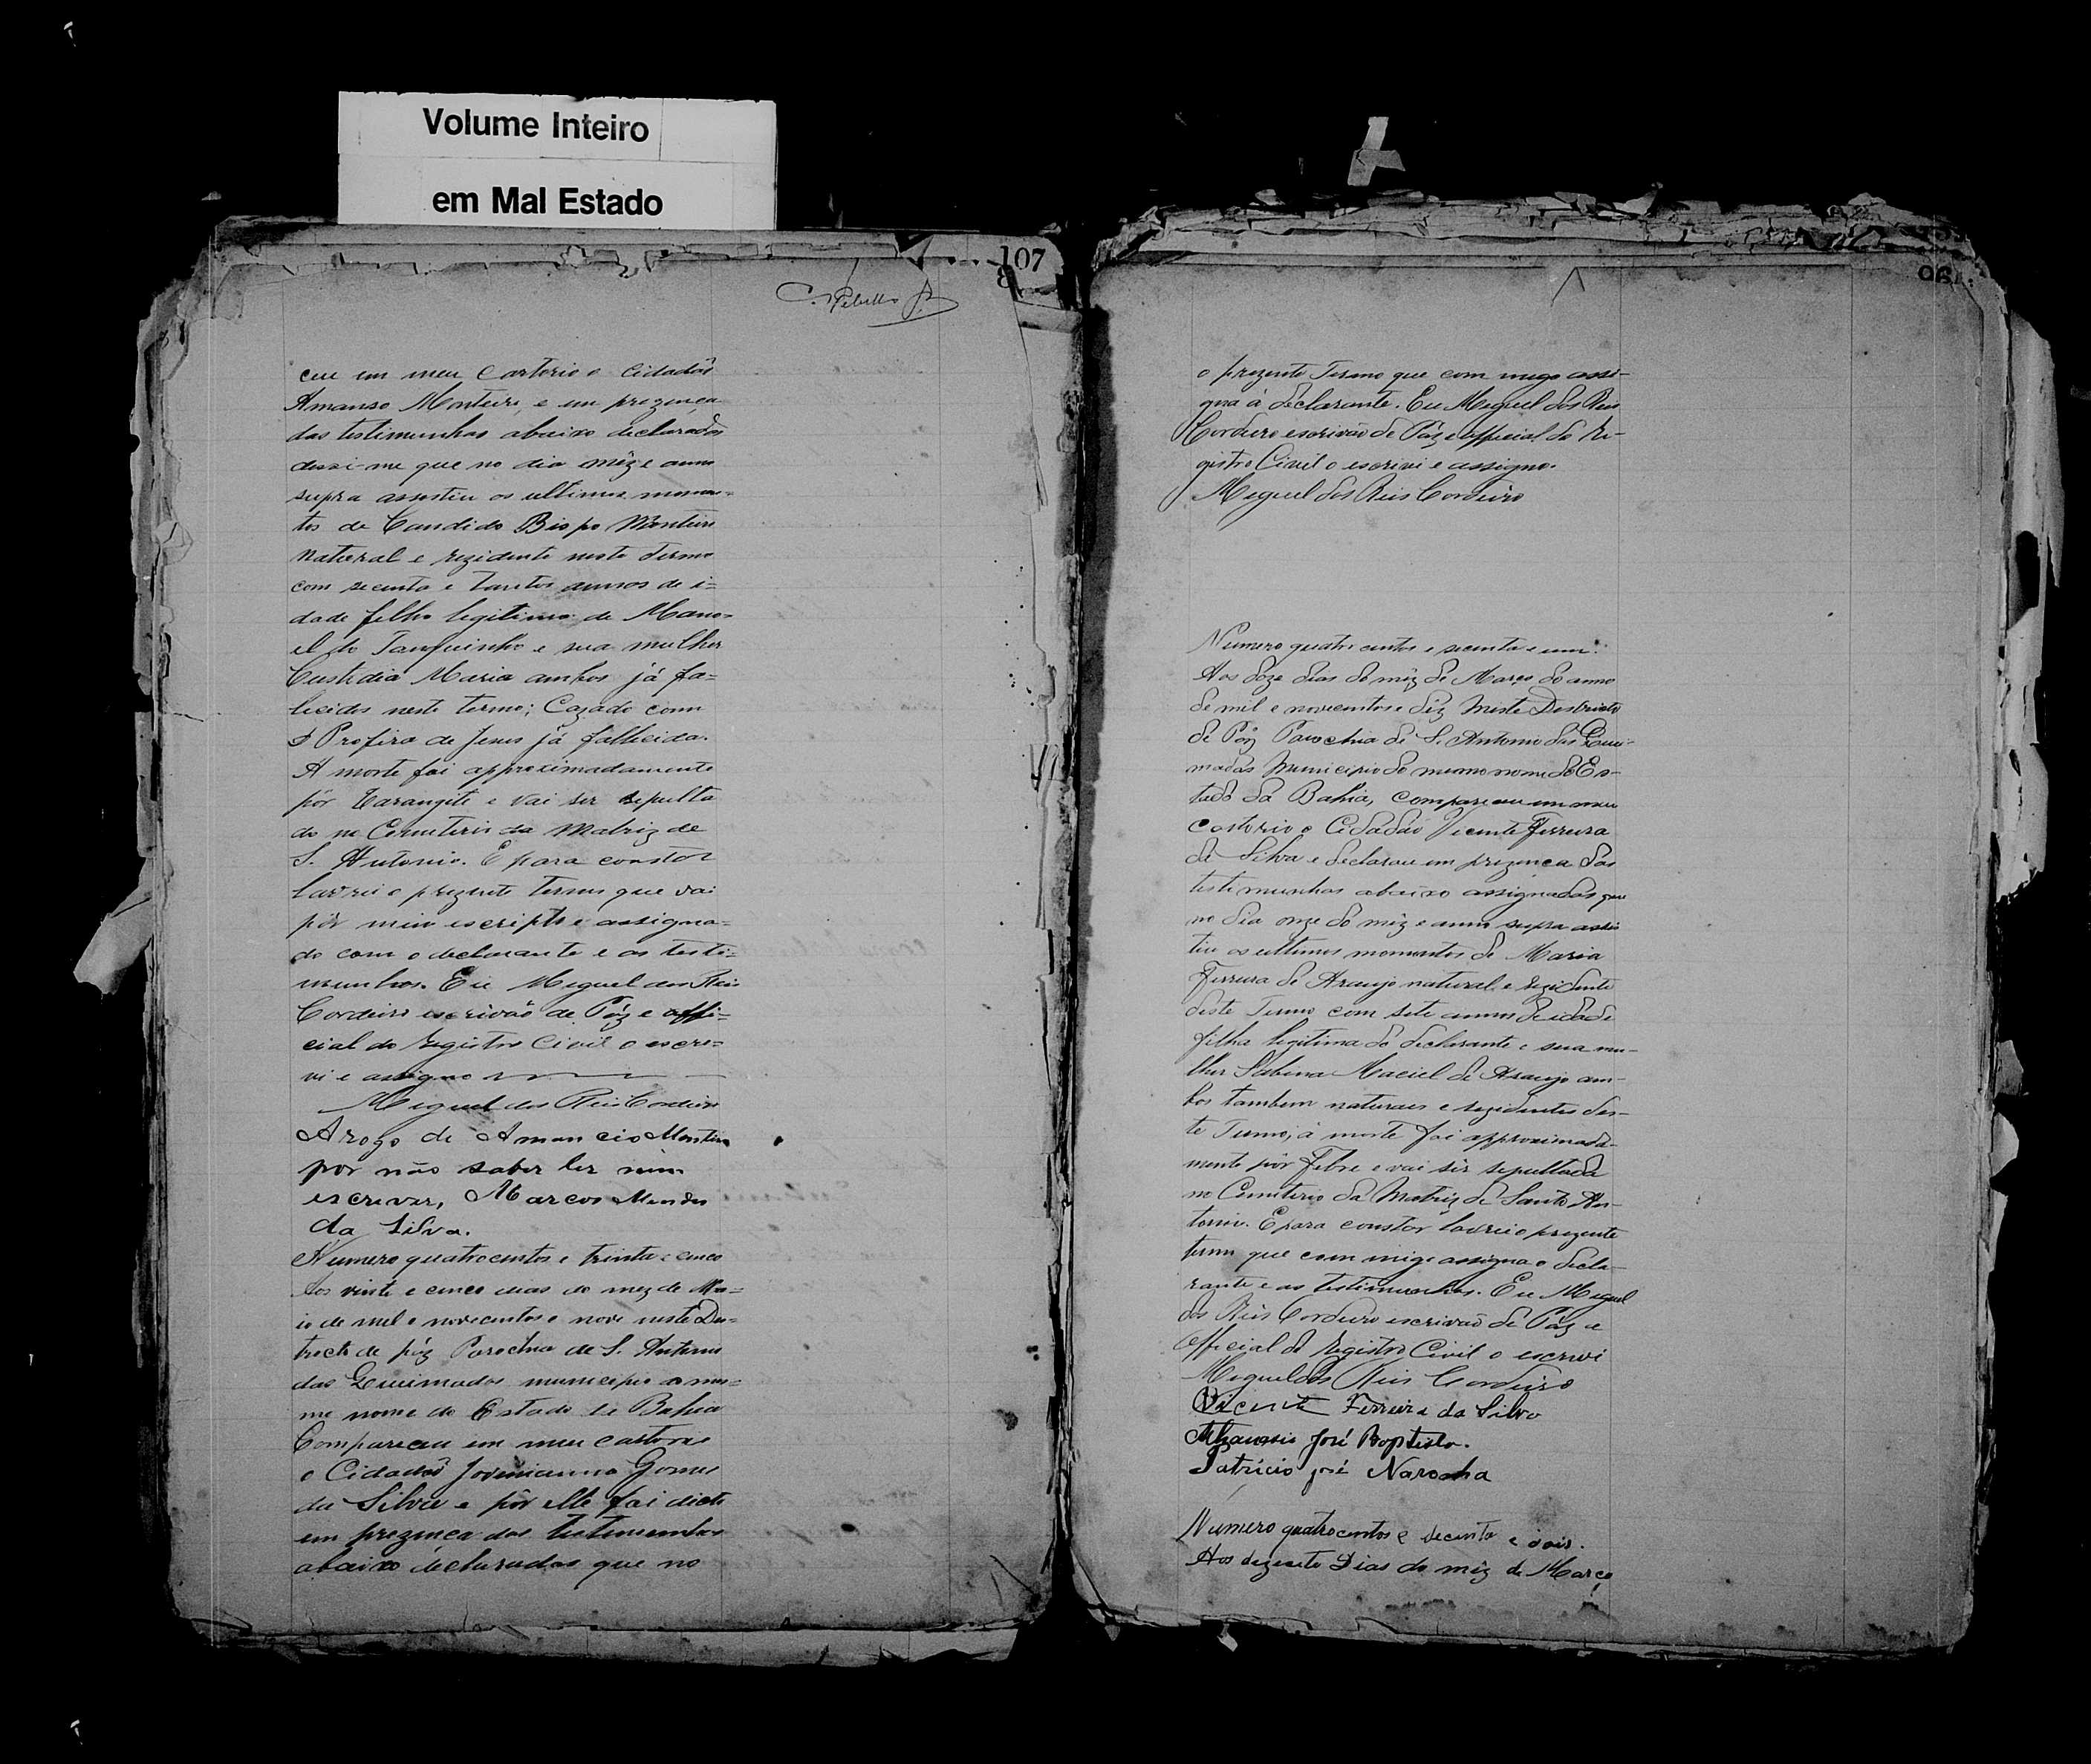 Volume Inteiro
em Mal Estado
107
ceu em meu Cartorio o Cidadão
Amanso Monteiro, e em prezença
das testimunhas abaixo declarados
dessi-me que no dia mêz e anno
supra assestiu os ultimos momen=
tos de Candido Bispo Monteiro
Natural e rezidente neste Termo
com secenta e tantos annos de i=
dade filho legitimo de Mano=
el do Tanquinho e sua mulher
Custodia Maria ambos já fa=
lecidos neste termo; Cazado com
D Profira de Jesus já fallecida.
A morte foi approximadamente
pôr e vai ser sepulta
do no Cemiterio da Matriz de
S. Antonio. E para constar
lavrei o prezente termo que vai
pôr mim escripto e assigna=
do com o declarante e as testi=
munhas. Eu Miguel dos Reis
Cordeiro escrivão de Páz e offi=
cial do registro Civil o escre=
vi e assigno
Miguel dos Reis Cordeiro
Arogo de Amancio Monteiro
por não saber ler nem
escrever, Marcos Mendes
da Silva.
Numero quatrocentos e trinta e cinco
Aos vinte e cinco dias do mez de Ma=
io de mil e novecentos e nove neste Des=
trecto de páz Parochia de S. Antonio
das Queimadas municipio do mes=
mo nome do Estado da Bahia
Compareceu em meu cartorio
o Cidadão Joviniano Gomes
da Silva e pôr elle foi dicto
em prezença das testimunhas
abaixo declaradas que no
o prezente Termo que com migo assi-
gna á declarante. Eu Miguel dos Reis
Cordeiro escrivão de Páz e official do Re-
gistro Civil o escrivi e assigno.
Miguel dos Reis Cordeiro
Numero quatro centos e secenta e um.
Aos doze dias do mêz de Março do anno
de mil e novecentos e déz Neste Destricto
de Páz Parochia de S. Antonio das Quei-
madas Municipio do mesmo nome do Es-
tado da Bahia, compareceu em meu
castorio o Cidadão Vicente Ferreira
da Silva e declarou em prezença das
testimunhas abaixo assignadas que
no dia onze do mêz e anno supra assis
tiu os ultimos momentos de Maria
Ferreira de Araujo natural e rezidente
deste Termo com sete annos de idade
filha legitima do declarante e sua mu-
lher Sabina Maciel de Araujo am-
bos tambem naturaes e rezidentes des-
te Termo, á morte foi approximada-
mente pôr Febre e vai sêr sepultada
no Cemiterio da Matriz de Santo An-
tonio. E para constar lavrei o prezente
termo que com migo assigna o decla-
rante e as testimunhas. Eu Miguel
dos Reis Cordeiro escrivão de Páz e
official do registro Civil o escrivi
Miguel dos Reis Cordeiro
Vicente Ferreira da Silva
José Baptista.
Patricio josé Narocha
Numero quatrocentos e secenta e dois.
Aos dezesete Dias do mêz de Março